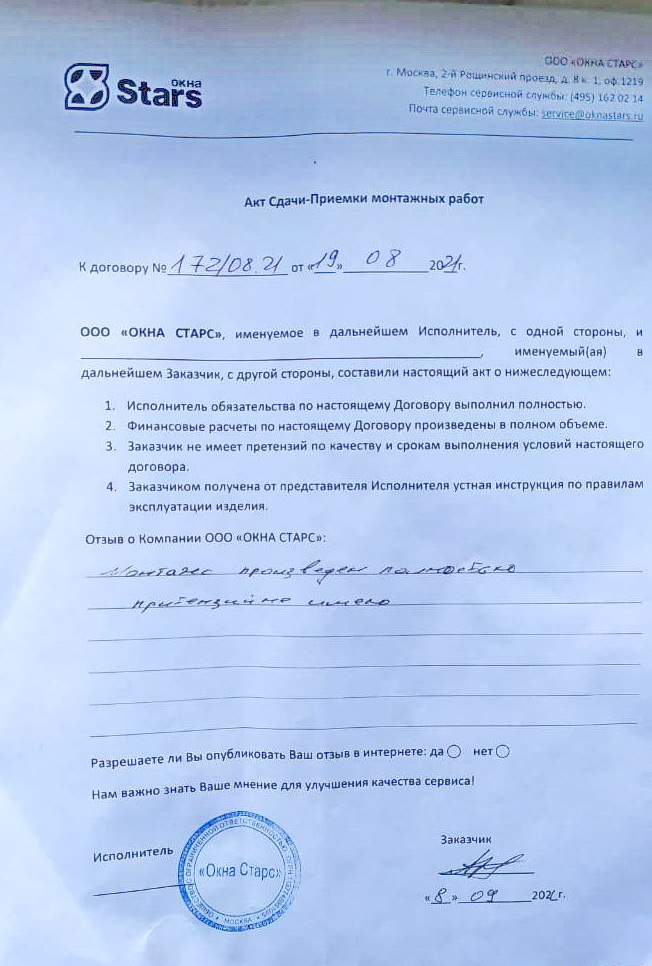 окна
Stars
ООО «ОКНА СТАРС»
г. Москва, 2-й Рощинский проезд, д. 8 к. 1, оф. 1219
Телефон сервисной службы: (495) 162 02 14
Почта сервисной службы: service@oknastars.ru
Акт Сдачи-Приемки монтажных работ
К договору № 172/08.21 от «19» 08 2021г.
ООО «ОКНА СТАРС», именуемое в дальнейшем Исполнитель, с одной стороны, и
, именуемый(ая) в
дальнейшем Заказчик, с другой стороны, составили настоящий акт о нижеследующем:
1. Исполнитель обязательства по настоящему Договору выполнил полностью.
2. Финансовые расчеты по настоящему Договору произведены в полном объеме.
3. Заказчик не имеет претензий по качеству и срокам выполнения условий настоящего
договора.
4. Заказчиком получена от представителя Исполнителя устная инструкция по правилам
эксплуатации изделия.
Отзыв о Компании ООО «ОКНА СТАРС»:
Монтаж произведен полностью
притензий не имею
Разрешаете ли Вы опубликовать Ваш отзыв в интернете: да нет
Нам важно знать Ваше мнение для улучшения качества сервиса!
Исполнитель
ОБЩЕСТВО С ОГРАНИЧЕННОЙ ОТВЕТСТВЕННОСТЬЮ
«Окна Старс»
МОСКВА
Заказчик
«8» 09 2021г.